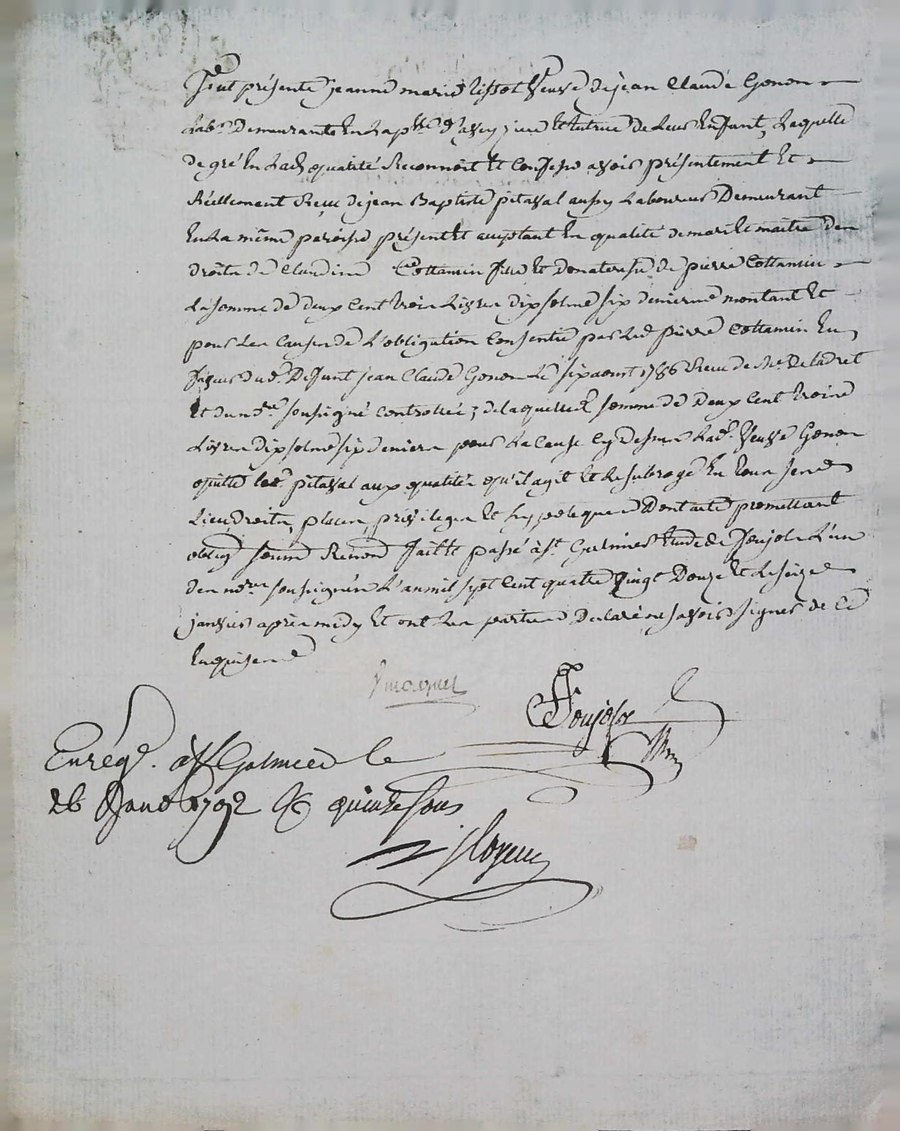 Fut présente jeanne marie tissot Veuve de jean Claude Gonon
Labr. Demeurante En La psse d'aveyzieu et tutrice de Leurs Enfants, Laquelle
de gré En Lad. qualité Reconnoit et Confesse avoir présentement Et
Réellement Recu de jean Baptiste pitaval aussy Laboureur Demeurant
En La même paroisse présent Et acceptant En qualité de mari Et maitre des
droits de Claudine Cottancin fille et Donateresse de pierre Cottancin
La somme de deux Cent trois Livres dix sols six deniers montant Et
pour Les Causes de L'obligation Consentie par Led. pierre Cottancin En
faveur dud. Defunt jean Claude Gonon Le six aoust 1786 Recue de Me
Et du nore. soussigné Controllée; de laquelle somme de Deux Cent trois
Livres dix sols six deniers pour La Cause Cy dessus Lad. Veuve Gonon
quitte led. pitaval aux qualités qu'il agit Et Le subroge En tous ses
Lieu, droits, places, privileges Et hypoteques Dont acte promettant
oblig. soumis Renon. fait Et passé à st. Galmier Etude de Foujols L'un
des nores. soussignés L'an mil sept Cent quatre Vingt Douze Et Le seize
janvier après midy Et ont Les parties Declaré ne savoir signer de Ce
Enquises
Foujols
Enrégé. à St Galmier le
26 Janv. 1792 quinze sous